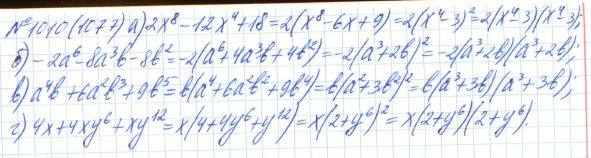 №1010(1077) а) 2x⁸-12x⁴+18=2(x⁸-6x+9)=2(x⁴-3)²=2(x⁴-3)(x⁴-3);
б) -2a⁶-8a³b-8b²=-2(a⁶+4a³b+4b²)=-2(a³+2b)²=-2(a³+2b)(a³+2b);
в) a⁴b+6a²b³+9b⁵=b(a⁴+6a²b²+9b⁴)=b(a²+3b²)²=b(a³+3b)(a³+3b);
г) 4x+4xy⁶+xy¹²=x(4+4y⁶+y¹²)=x(2+y⁶)²=x(2+y⁶)(2+y⁶).